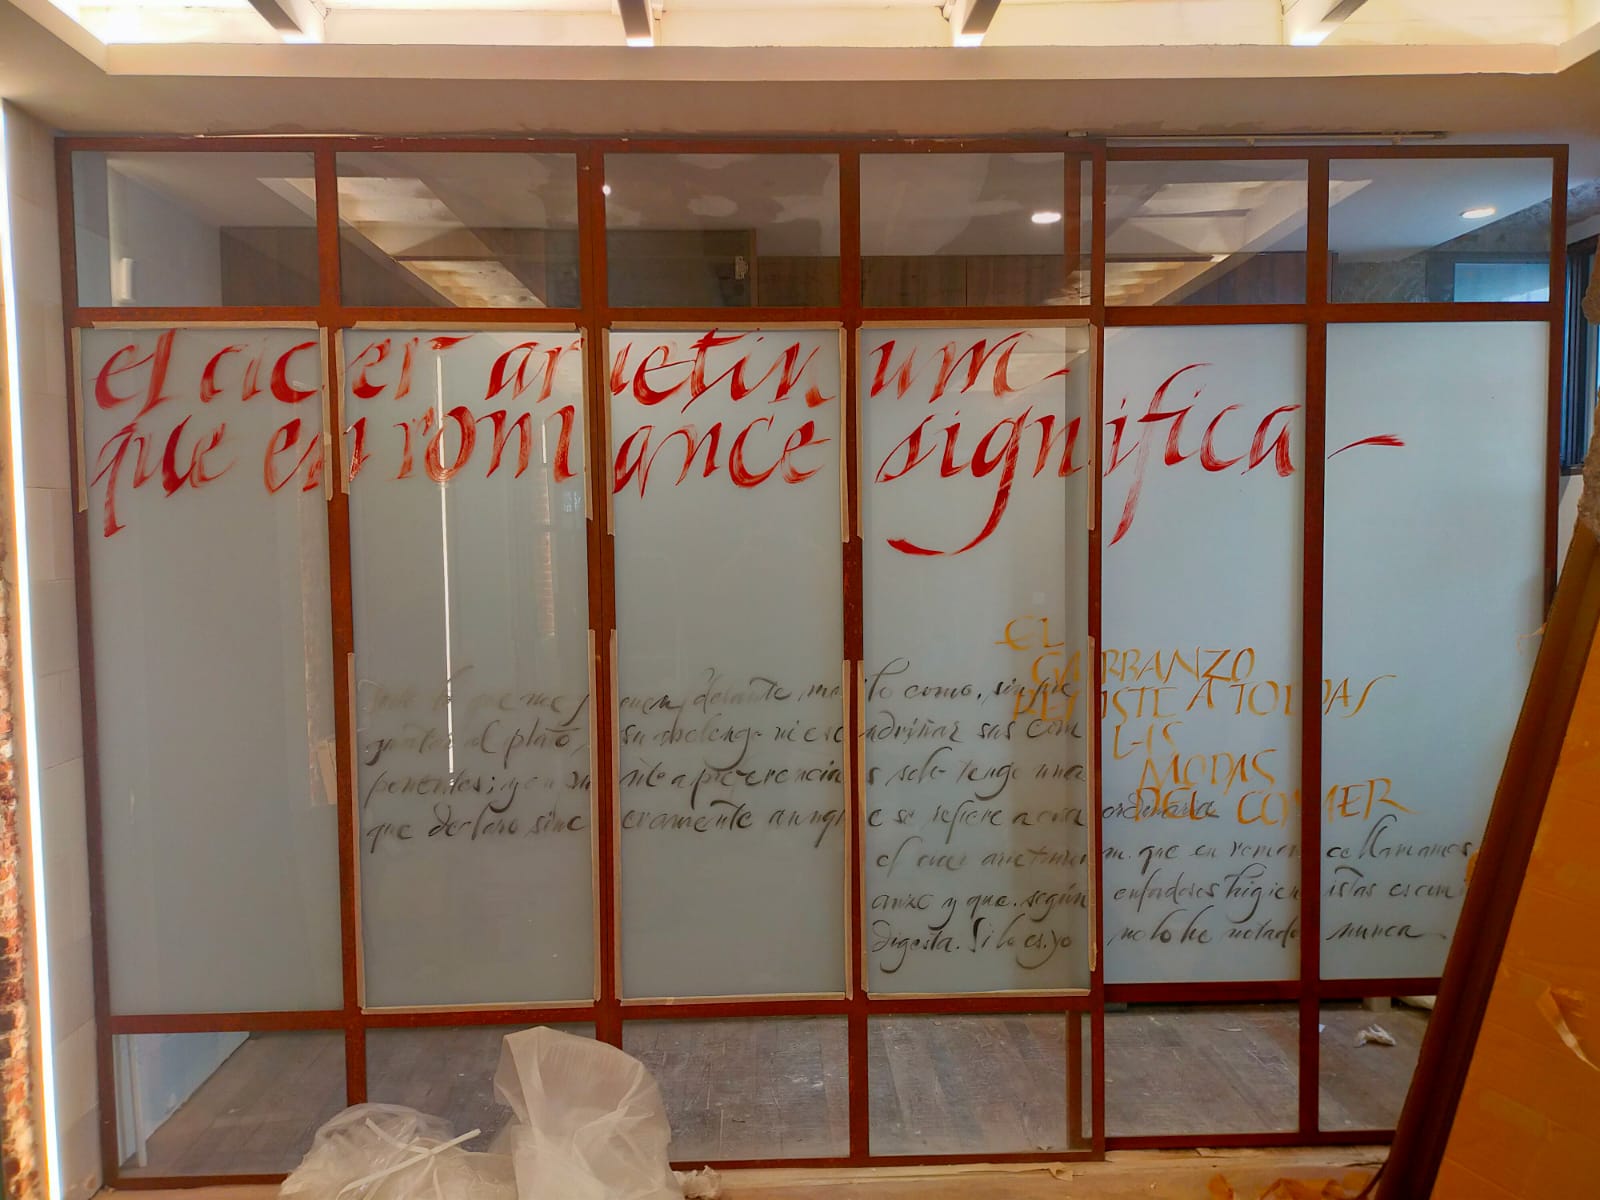 el cicer arietinum
que en romance significa
EL
GARBANZO
RESISTE A TODAS
LAS
MODAS
DEL COMER
Todo lo que me ponen delante, me lo como, sin pre
guntar al plato, su abolengo ni escudriñar sus com
ponentes; y en materia preferencias solo tengo una
que declaro sinceramente aunque se refiere a cosa ordinaria
el cicer arietinum. que en romance llamamos
anzo y que. según enfadosos higienistas es
digesta. Si lo es. yo no lo he notado nunca